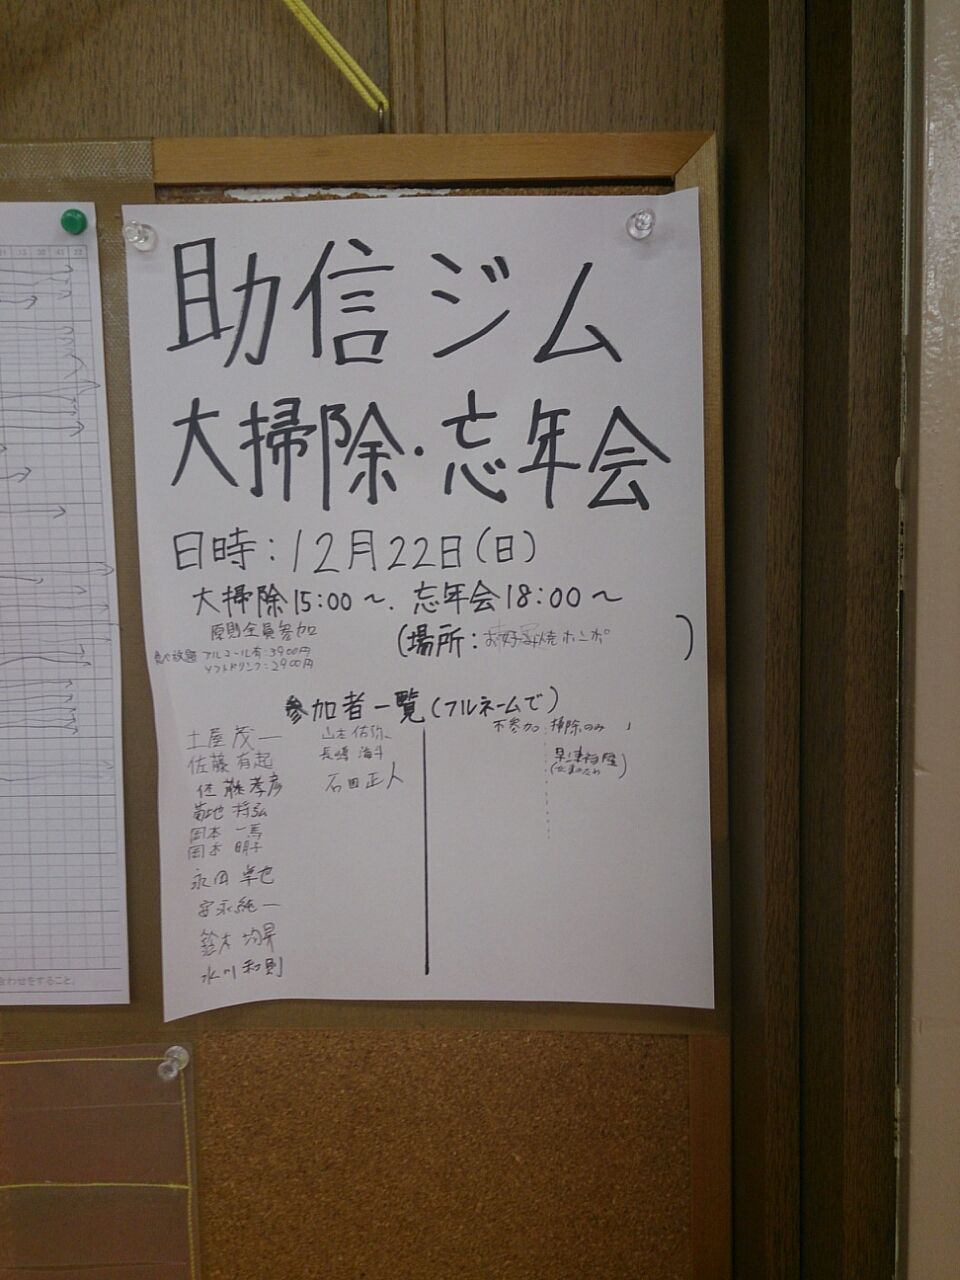 助信ジム
大掃除・忘年会
日時：12月22日(日)
大掃除15:00〜、忘年会18:00〜
原則全員参加
(場所：お好み焼ホンポ)
食べ放題 アルコール有：3900円
ソフトドリンク：2900円
参加者一覧(フルネームで)
土屋 茂一
佐藤 有起
佐藤 孝彦
菊地 将弘
岡本 一馬
岡本 明子
永田 卓也
安永 純一
鈴木
水川 和則
山本 佑弥
長嶋 海斗
石田 正人
不参加：掃除のみ